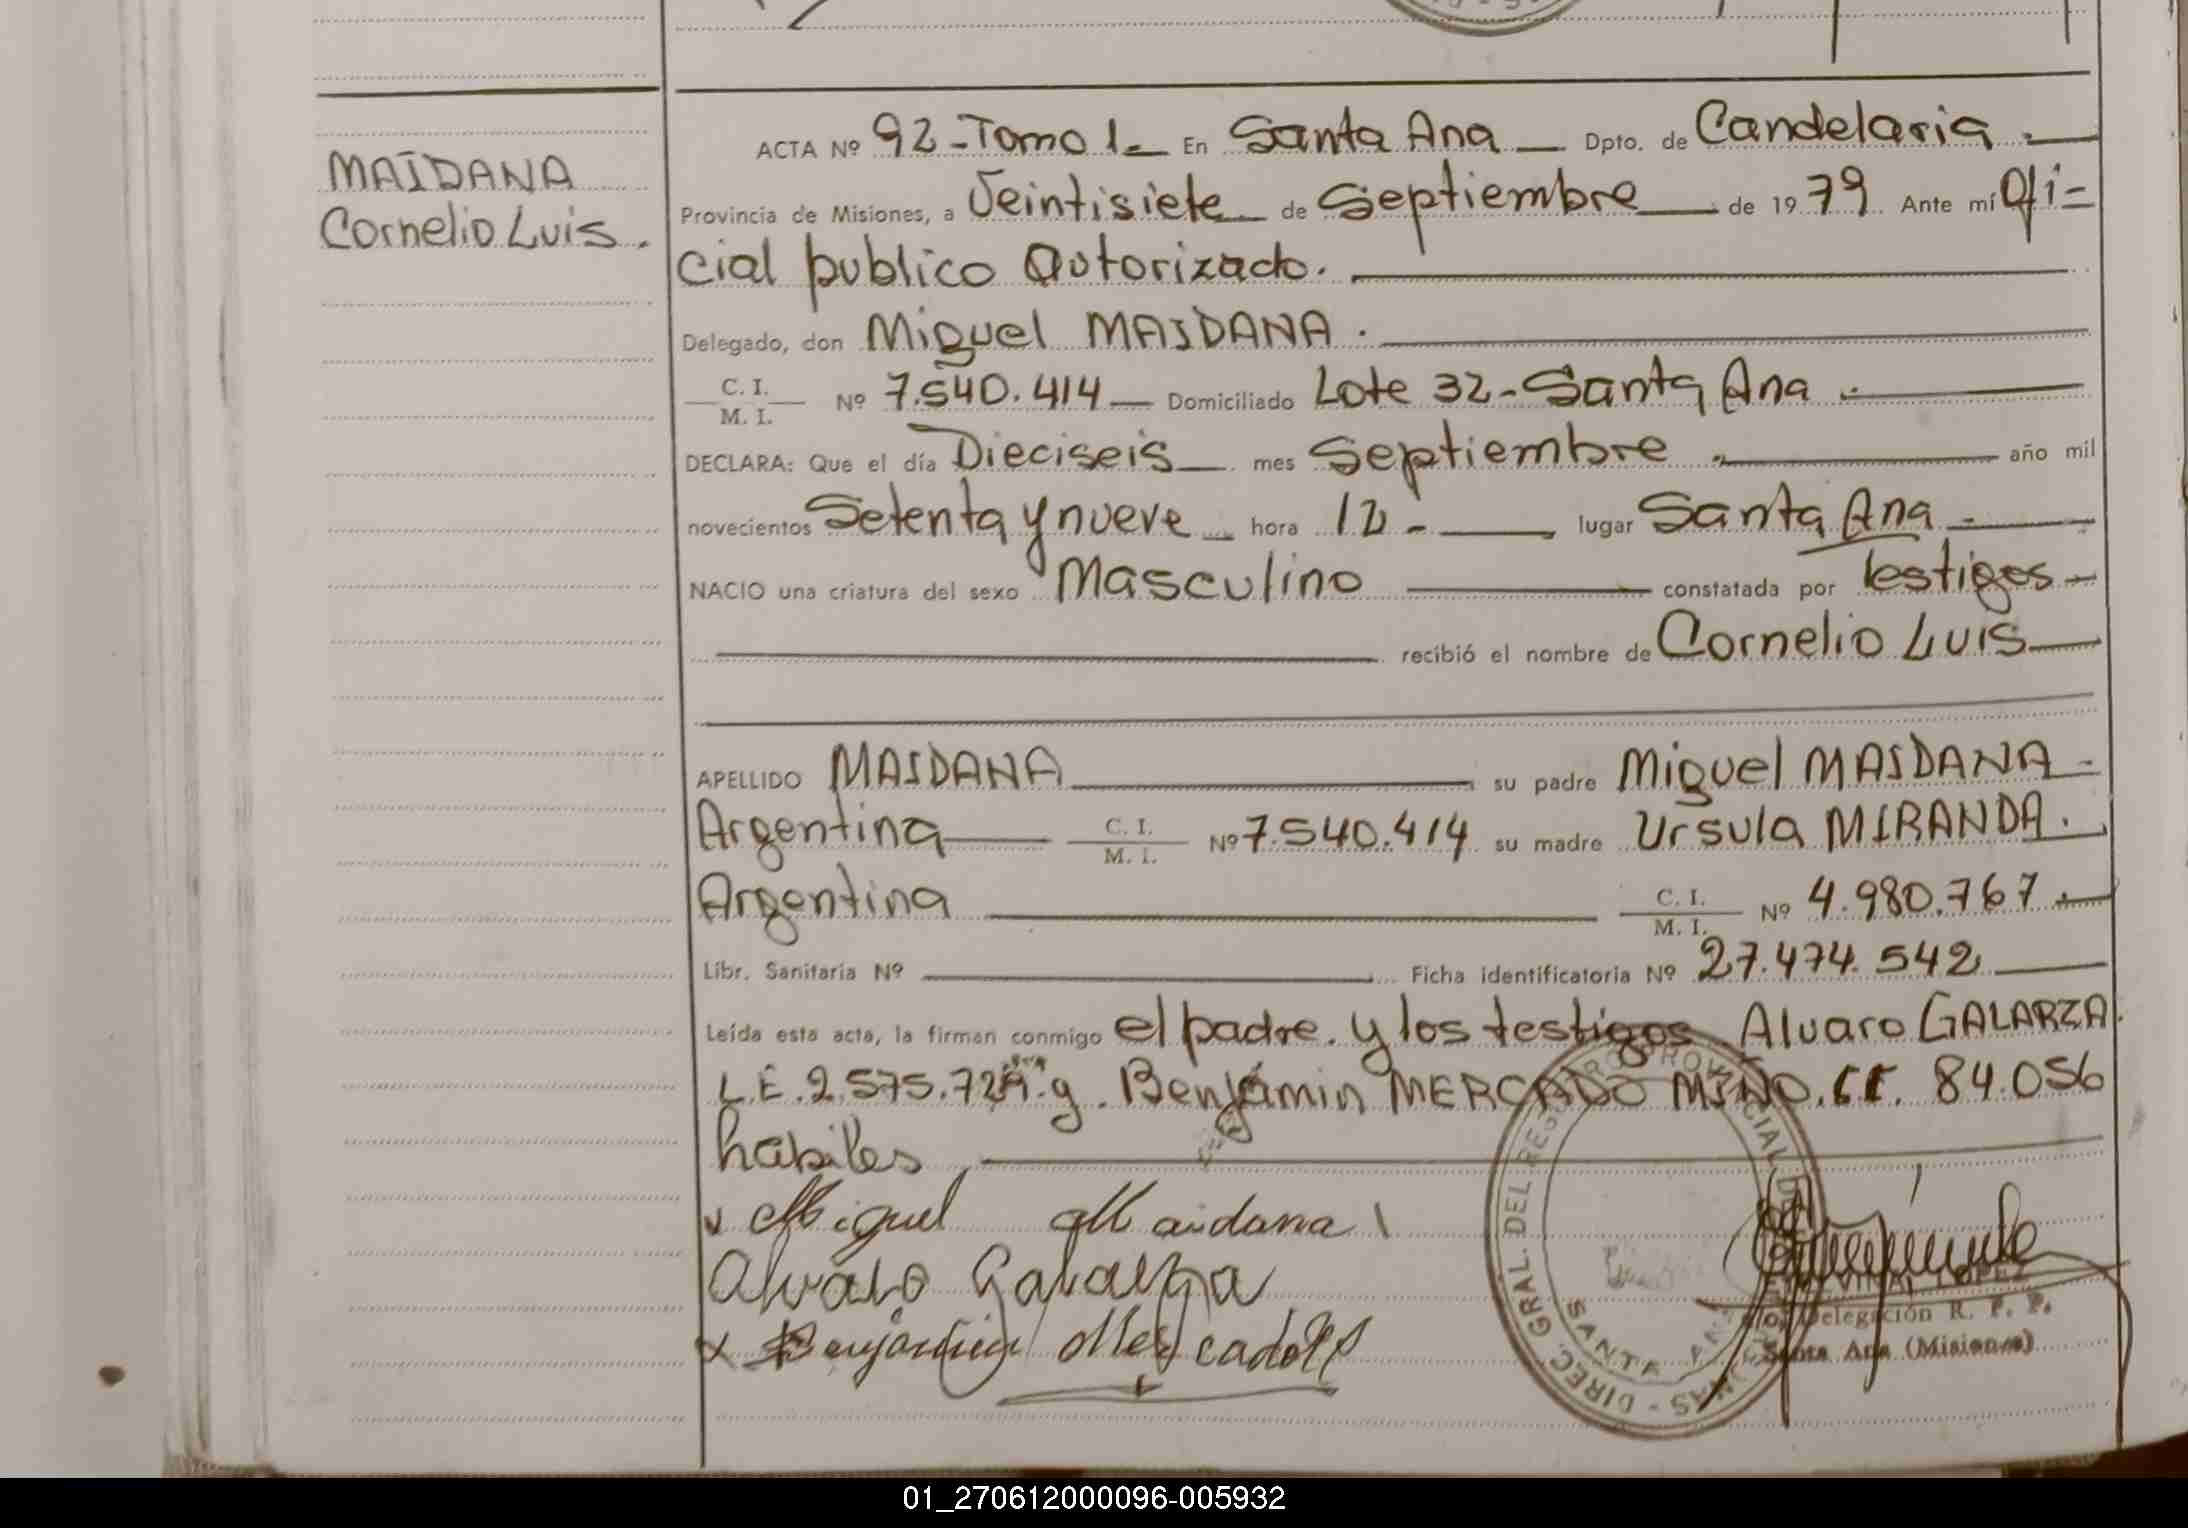 MAIDANA
Cornelio Luis.
ACTA Nº 92-Tomo 1- En Santa Ana Dpto. de Candelaria.
Provincia de Misiones, a Veintisiete de Septiembre de 1979 Ante mí Ofi=
cial publico Autorizado.
Delegado, don Miguel MAIDANA.
C. I.
M. I. Nº 7.540.414 Domiciliado Lote 32-Santa Ana.
DECLARA: Que el día Dieciseis mes Septiembre año mil
novecientos Setenta y nueve hora 12- lugar Santa Ana-
NACIO una criatura del sexo Masculino constatada por testigos
recibió el nombre de Cornelio Luis
APELLIDO MAIDANA su padre Miguel MAIDANA-
Argentina C. I. M. I. Nº 7.540.414 su madre Ursula MIRANDA.
Argentina C. I. M. I. Nº 4.980.767
Libr. Sanitaria Nº Ficha identificatoria Nº 27.474.542
Leída esta acta, la firman conmigo el padre. y los testigos Alvaro GALARZA.
L.E. 2.575. y. Benjamin MERCADO MIÑO. 84.056
habiles
Miguel Maidana
Alvaro Galarza
Benjamin Mercado
DIREC. GRAL. DEL REGISTRO PROVINCIAL DE
SANTA ANA
Delegación R. P. P.
Santa Ana (Misiones)
01_270612000096-005932